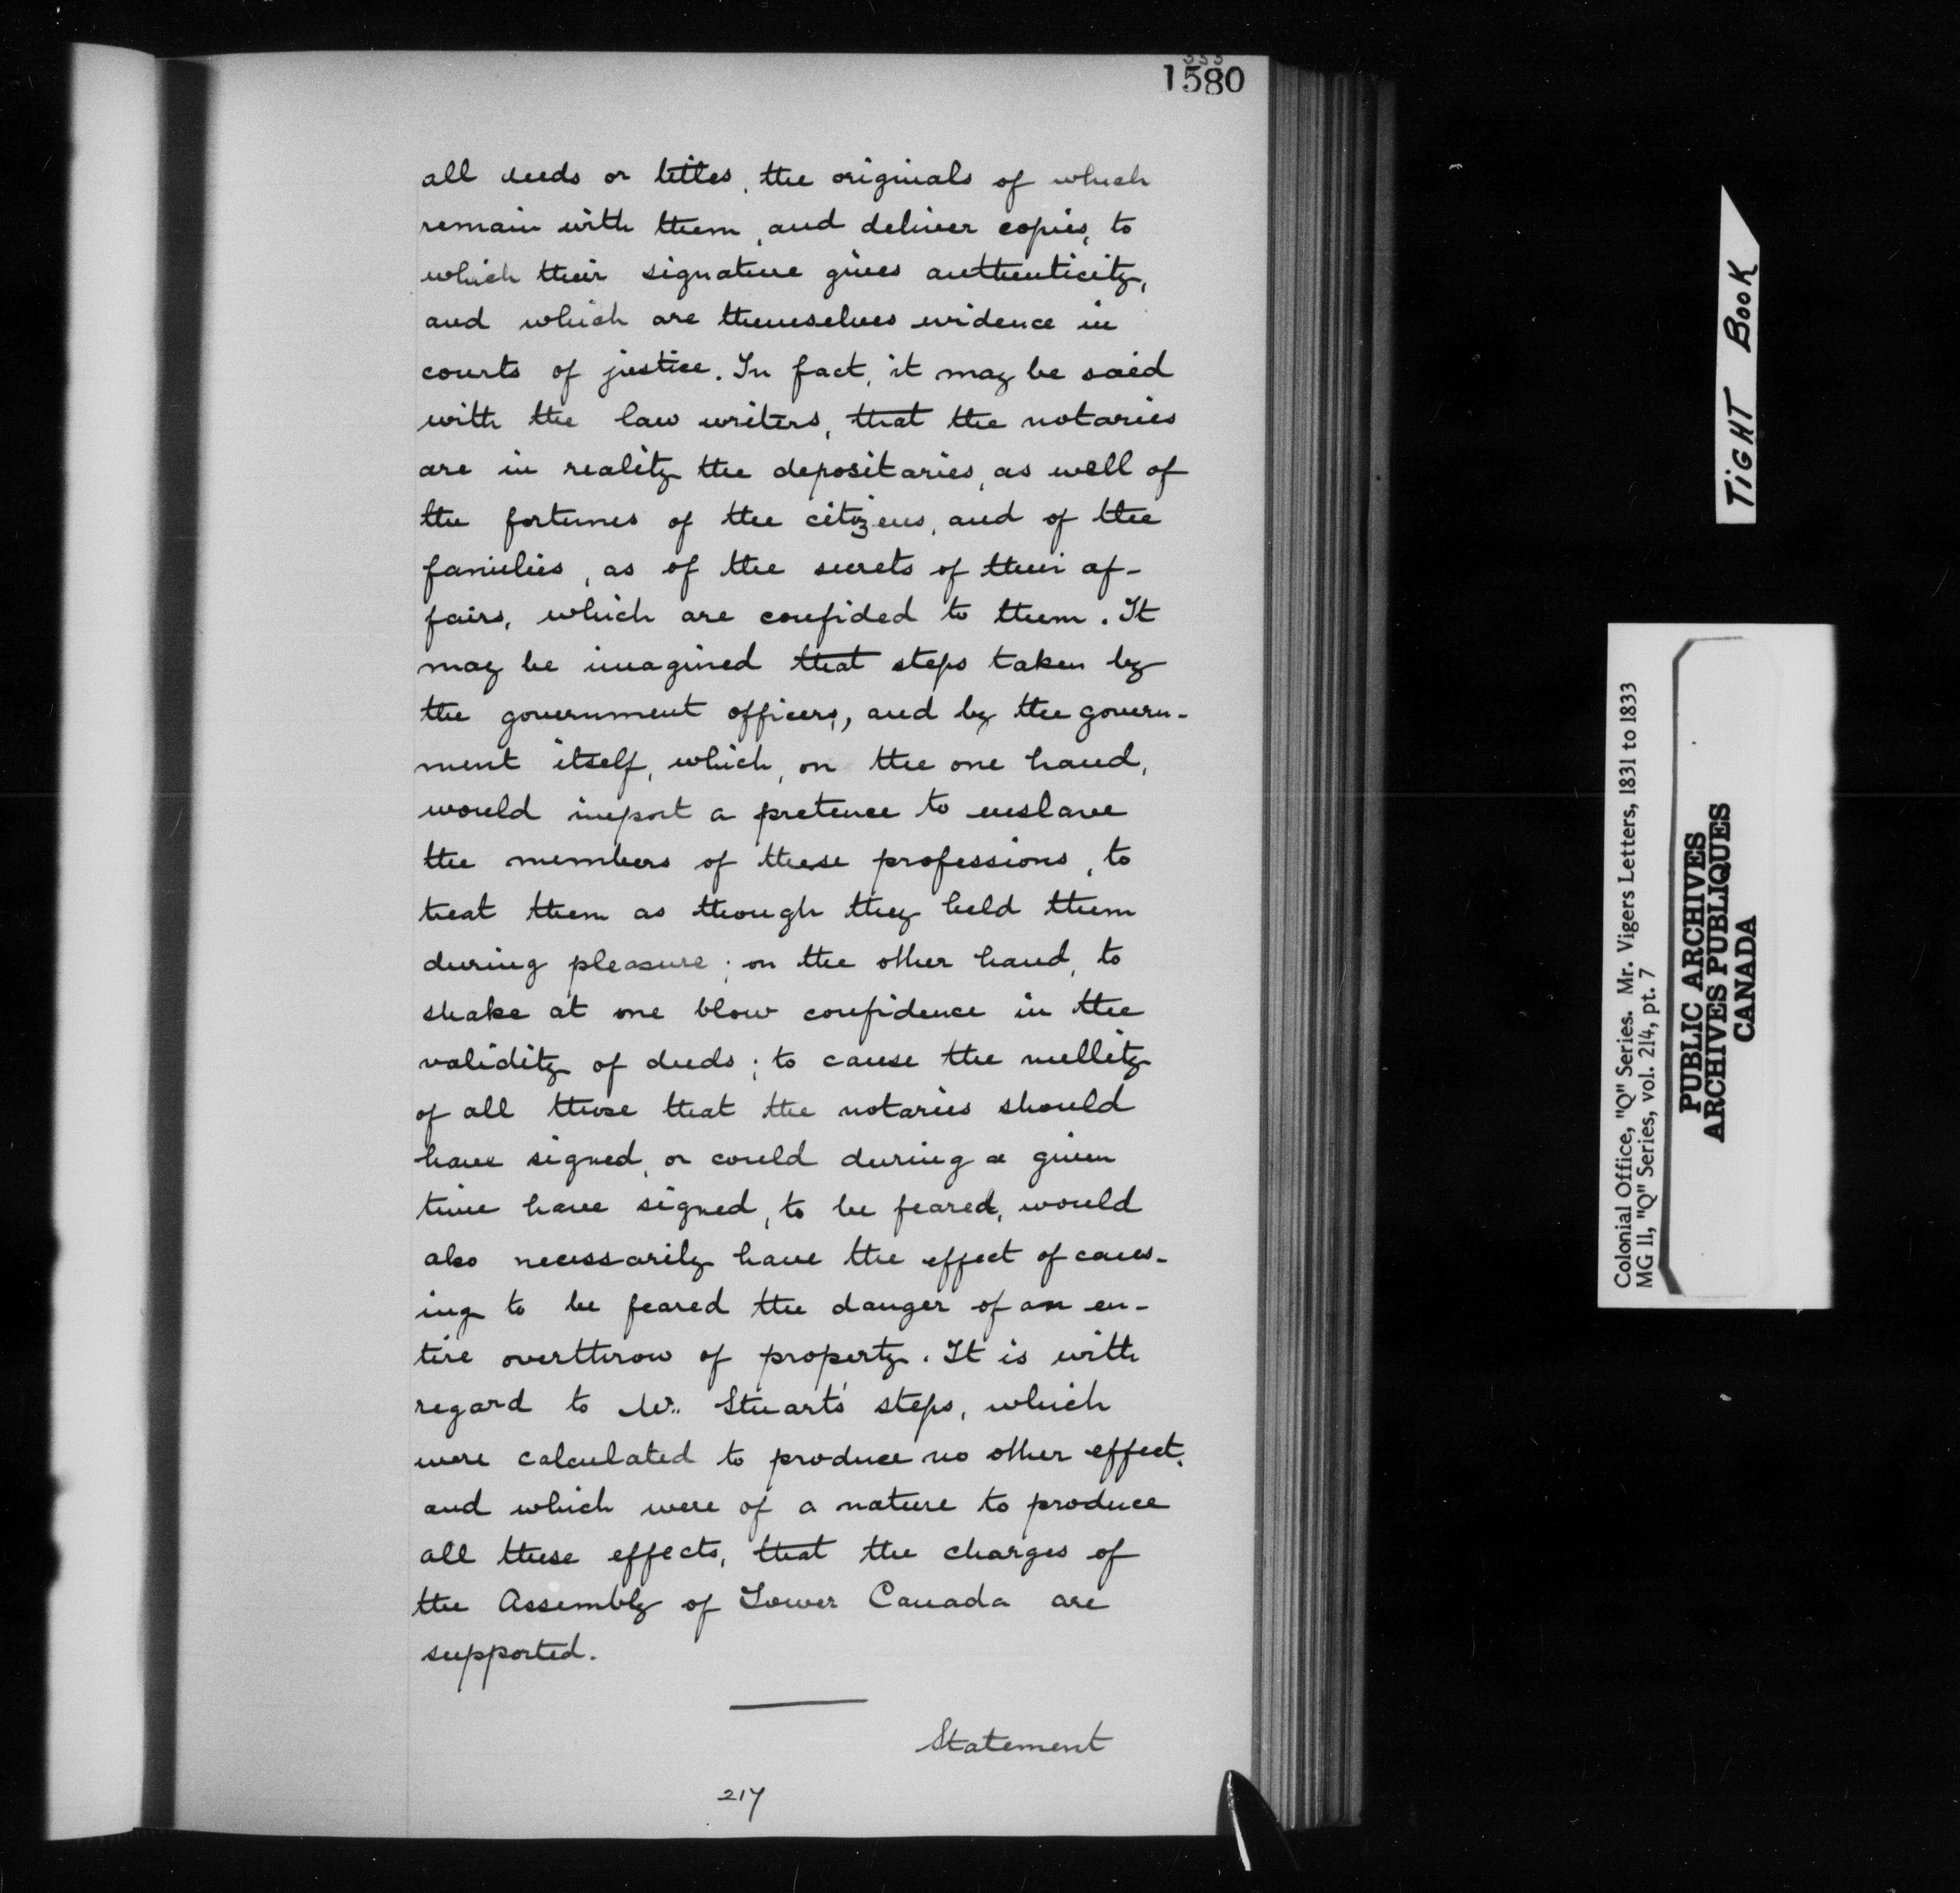 1580
all deeds or titles, the originals of which
remain with them, and deliver copies, to
which their signature gives authenticity,
and which are themselves evidence in
courts of justice. In fact, it may be said
with the law writers, that the notaries
are in reality the depositaries, as well of
the fortunes of the citizens, and of the
families, as of the secrets of their af-
fairs, which are confided to them. It
may be imagined that steps taken by
the government officers, and by the govern-
ment itself, which, on the one hand,
would import a pretence to enslave
the members of these professions, to
treat them as though they held them
during pleasure; on the other hand, to
shake at one blow confidence in the
validity of deeds; to cause the nullity
of all those that the notaries should
have signed, or could during a given
time have signed, to be feared, would
also necessarily have the effect of caus-
ing to be feared the danger of an en-
tire overthrow of property. It is with
regard to Mr. Stuart's steps, which
were calculated to produce no other effect,
and which were of a nature to produce
all these effects, that the charges of
the Assembly of Lower Canada are
supported.
Statement
217
TIGHT BOOK
Colonial Office, "Q" Series. Mr. Vigers Letters, 1831 to 1833
MG 11, "Q" Series, vol. 214, pt. 7
PUBLIC ARCHIVES
ARCHIVES PUBLIQUES
CANADA